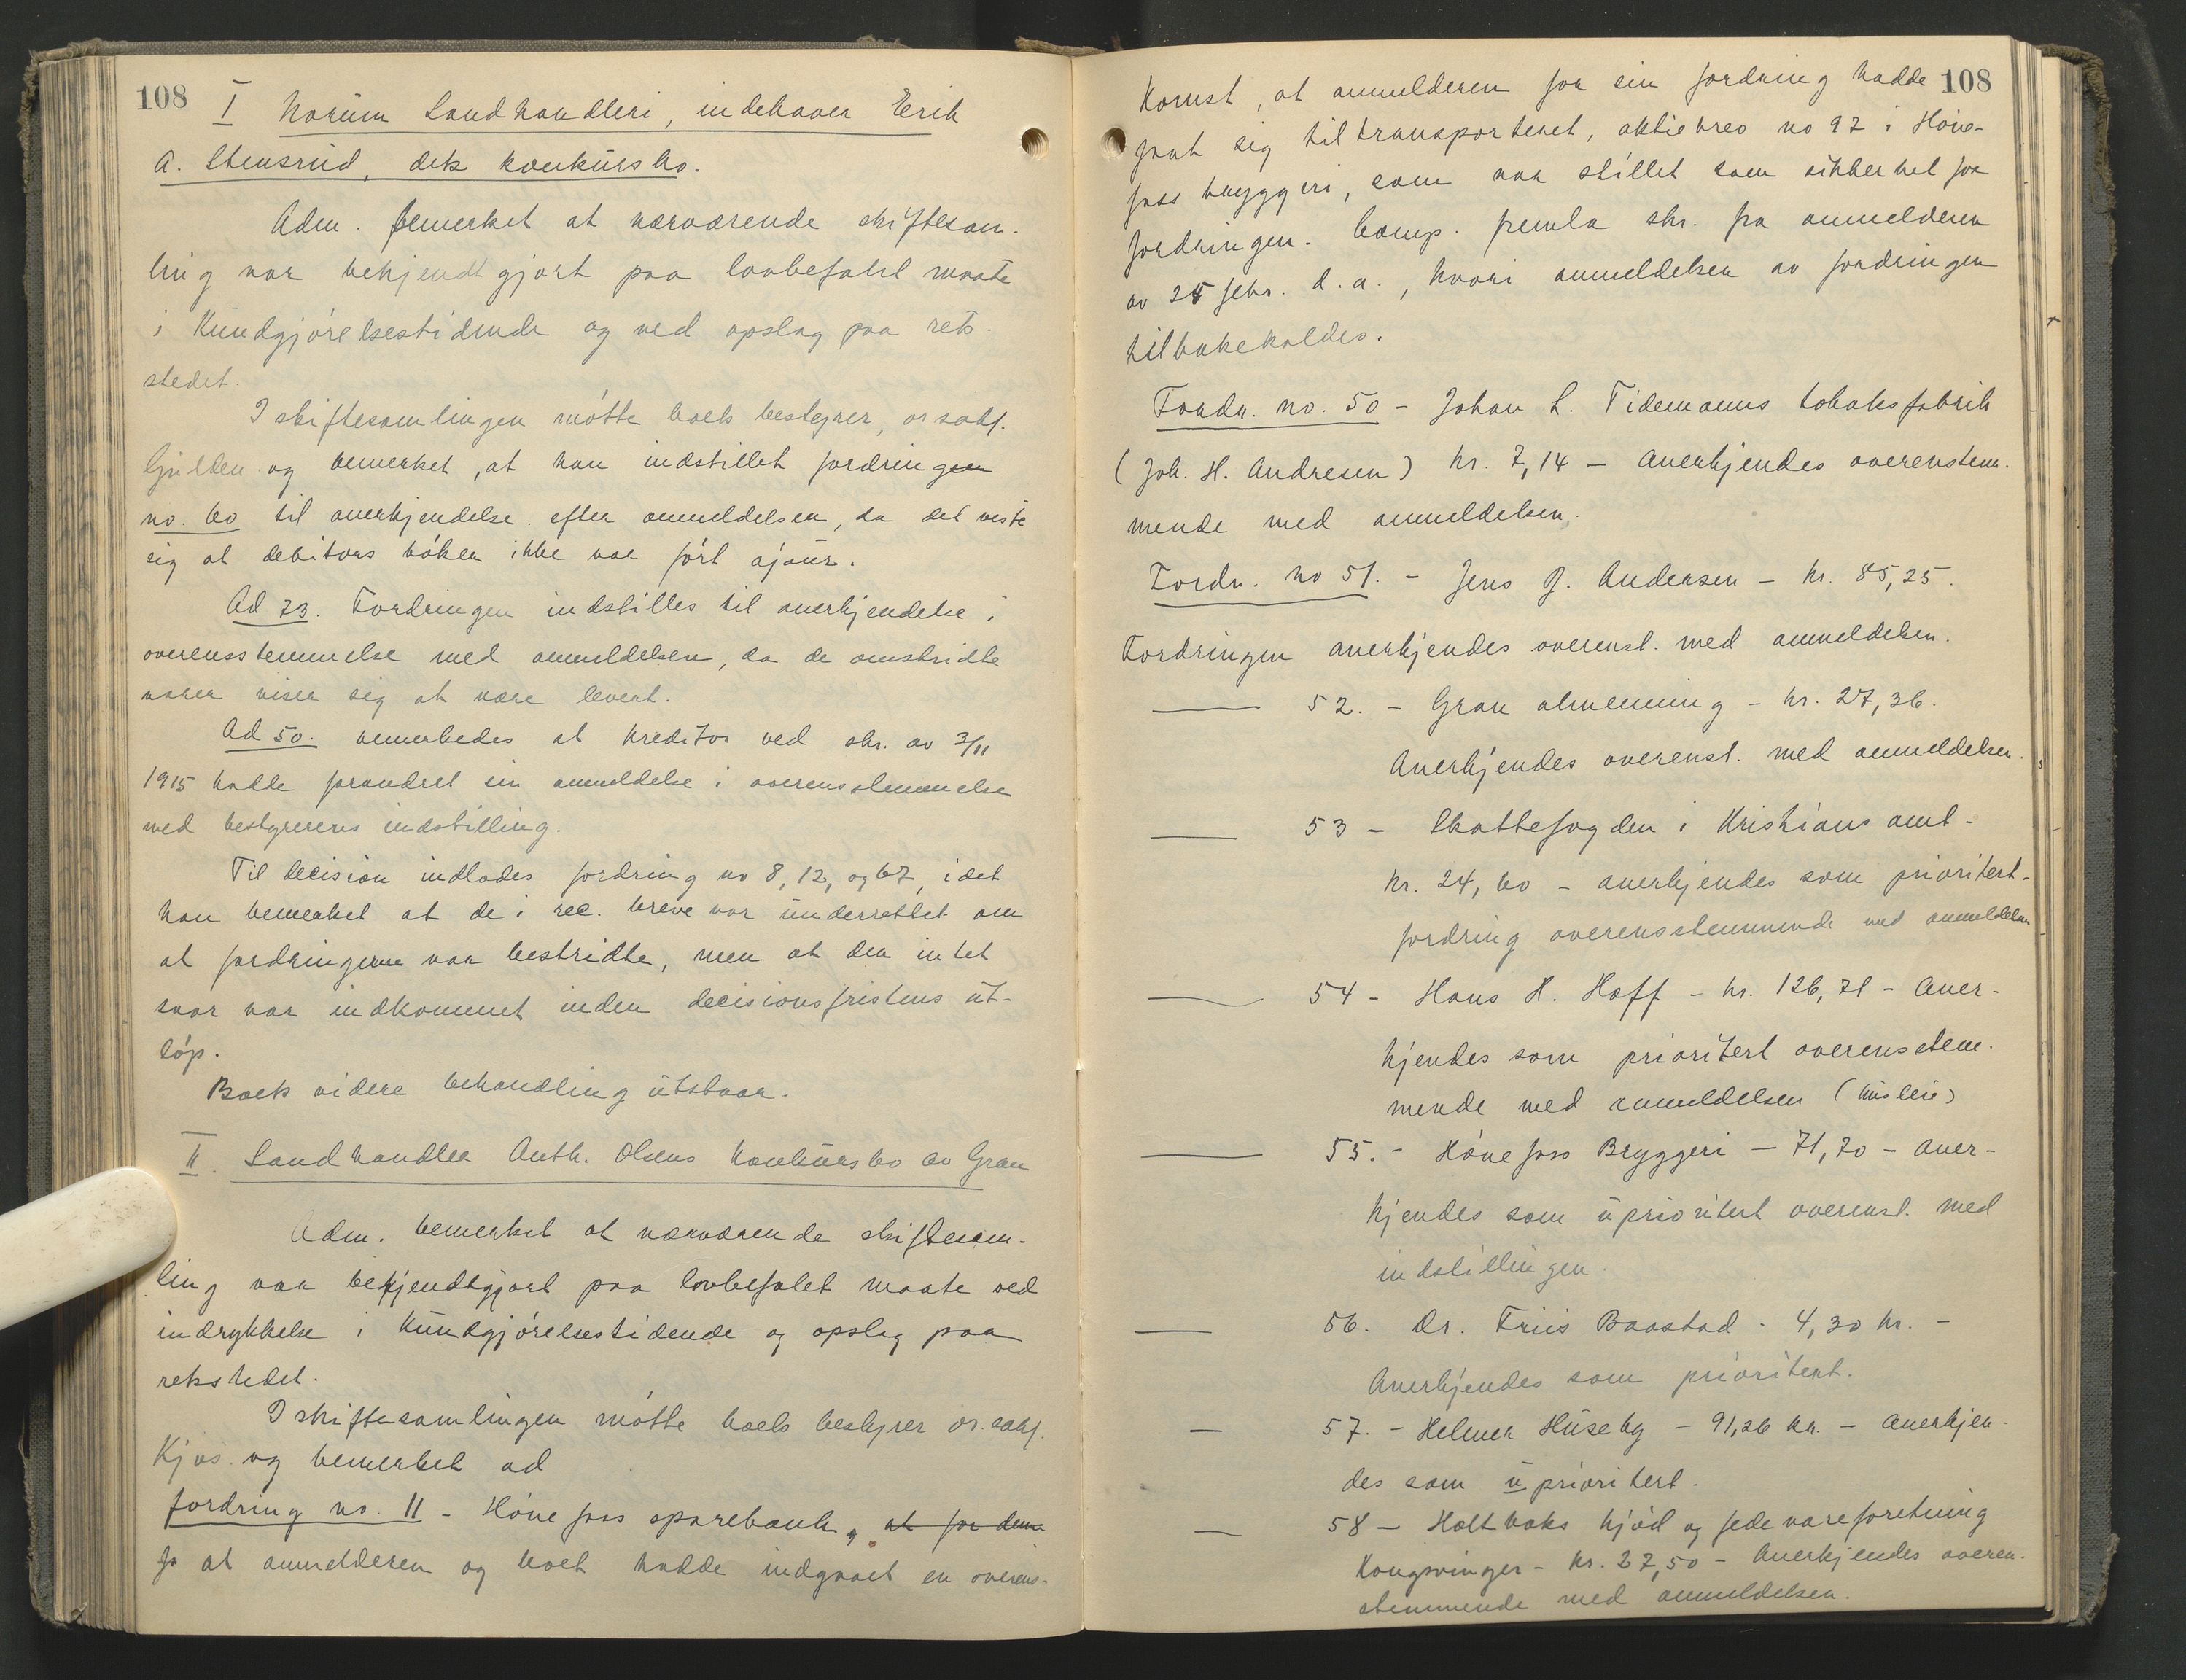 108
I Norum Landhandleri, indehaver Erik
A. Stensrud, dets konkursbo.
Adm. bemerket at nærværende skiftesam-
ling var bekjendtgjort paa lovbefalet maate
i Kundgjørelsestidende og ved opslag paa rets-
stedet.
I skiftesamlingen møtte boets bestyrer, orsakf.
Gulden og bemerket, at han indstillet fordringen
no. 60 til anerkjendelse efter anmeldelsen, da det viste
sig at debitors bøker ikke var ført ajour.
Ad 73. Fordringen indstilles til anerkjendelse i
overensstemmelse med anmeldelsen, da de omstridte
varer viser sig at være levert.
Ad 50. bemerkedes at kreditor ved skr. av 3/11
1915 hadde forandret sin anmeldelse i overensstemmelse
med bestyrerens indstilling.
Til decision indlodes fordring no 8, 12, og 67, idet
han bemerket at de i rec. breve var underrettet om
at fordringerne var bestridte, men at der intet
svar var indkommet inden decisionsfristens ut-
løp.
Boets videre behandling utstaar.
II. Landhandler Anth. Olsens konkursbo av Gran
Adm. bemerket at nærværende skiftesam-
ling var bekjendtgjort paa lovbefalet maate ved
indrykkelse i Kundgjørelsestidende og opslag paa
retsstedet.
I skiftesamlingen møtte boets bestyrer or. sakf.
Kjos og bemerket ad
fordring no. 11 - Hønefoss sparebank, at for denne
at anmelderen og boet hadde indgaaet en overens-
108
komst, at anmelderen for sin fordring hadde
faat sig tiltransportert, aktiebrev no 97 i Høne-
foss bryggeri, som var stillet som sikkerhet for
fordringen. Comp. fremla skr. fra anmelderen
av 25 febr. d.a., hvori anmeldelsen av fordringen
tilbakekaldes.
Fordr. no. 50 - Johan L. Tidemanns tobaksfabrik
(Joh. H. Andresen) kr. 7,14 - Anerkjendes overenstem-
mende med anmeldelsen.
Fordr. no 51. - Jens J. Andersen - kr. 85,25.
Fordringen anerkjendes overenst. med anmeldelsen.
— 52. - Gran almenning - kr. 27,36.
Anerkjendes overenst. med anmeldelsen.
— 53 - Skattefogden i Kristians amt -
kr. 24,60 - anerkjendes som prioritert
fordring overensstemmende med anmeldelsen
— 54 - Hans H. Hoff - kr. 126,71 - Aner-
kjendes som prioritert overensstem-
mende med anmeldelsen (husleie)
— 55. - Hønefoss Bryggeri - 71,70 - Aner-
kjendes som uprioritert overenst. med
indstillingen.
— 56. Dr. Friis Baastad - 4,30 kr. -
Anerkjendes som prioritert.
— 57. - Helmer Huseby - 91,26 kr. - Anerkjen-
des som uprioritert.
— 58 - Holtbaks kjød og fedevareforetning
Kongsvinger - kr. 27,50 - Anerkjendes overen-
stemmende med anmeldelsen.